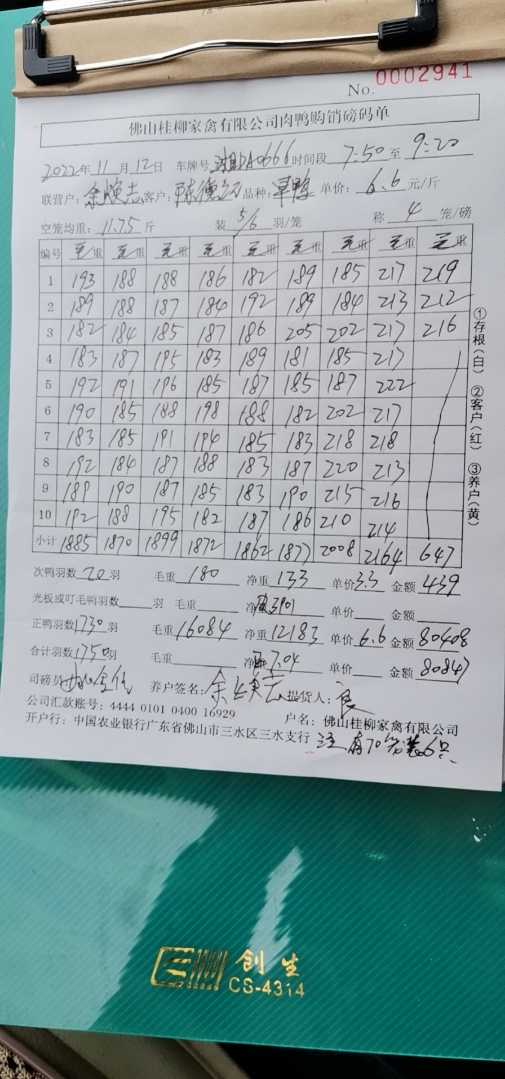 No. 0002941
佛山桂柳家禽有限公司肉鸭购销磅码单
2022年11月12日 车牌号 A0666 时间段 7:50 至 9:20
联营户: 余焕志 客户: 陈德 品种: 单价: 6.6 元/斤
空笼均重: 11.75 斤 装 5/6 羽/笼 称 4 笼/磅
编号 毛重 毛重 毛重 毛重 毛重 毛重 毛重 毛重 毛重
1 193 188 188 186 182 189 185 217 219
2 189 188 187 184 192 189 184 213 212
3 182 184 185 187 186 205 202 217 216
4 183 187 195 183 189 181 185 217
5 192 191 196 185 187 185 187 222
6 190 185 188 198 188 182 202 217
7 183 185 191 194 185 183 218 218
8 192 184 187 188 183 187 220 213
9 189 190 187 185 183 190 215 216
10 192 188 195 182 187 186 210 214
小计 1885 1870 1899 1872 1862 1877 2008 2164 647
①存根(白) ②客户(红) ③养户(黄)
次鸭羽数 20 羽 毛重 180 净重 133 单价 3.3 金额 439
光板或叮毛鸭羽数 羽 毛重 净重 3901 单价 金额
正鸭羽数 1730 羽 毛重 16084 净重 12183 单价 6.6 金额 80408
合计羽数 1750 羽 毛重 净重 7.04 单价 金额 80847
司磅员: 养户签名: 余焕志 提货人: 良
公司汇款账号: 4444 0101 0400 16929 户名: 佛山桂柳家禽有限公司
开户行: 中国农业银行广东省佛山市三水区三水支行 注 有70笼装6只
创生
CS-4314